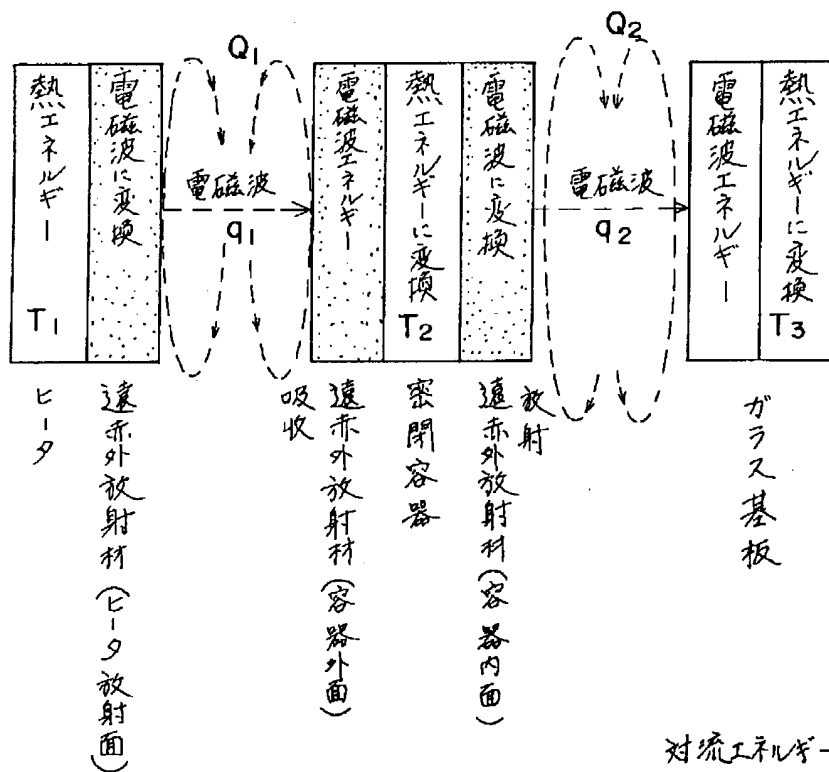 熱エネルギー
T1
電磁波に変換
Q1
電磁波
q1
電磁波エネルギー
熱エネルギーに変換
T2
電磁波に変換
Q2
電磁波
q2
電磁波エネルギー
熱エネルギーに変換
T3
ヒータ
遠赤外放射材(ヒータ放射面)
吸収
遠赤外放射材(容器外面)
密閉容器
遠赤外放射材(容器内面)
放射
ガラス基板
対流エネルギー